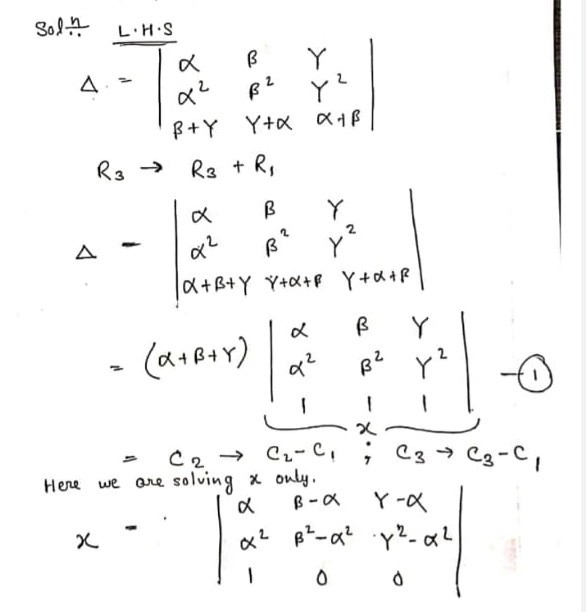 Solⁿ:. L.H.S
Δ = | α β γ |
| α² β² γ² |
| β+γ γ+α α+β |
R₃ → R₃ + R₁
Δ - | α β γ |
| α² β² γ² |
| α+β+γ γ+α+β γ+α+β |
= (α+β+γ) | α β γ |
| α² β² γ² | - ①
| 1 1 1 |
x
= C₂ → C₂-C₁ ; C₃ → C₃-C₁
Here we are solving x only.
| α β-α γ-α |
x - | α² β²-α² γ²-α² |
| 1 0 0 |